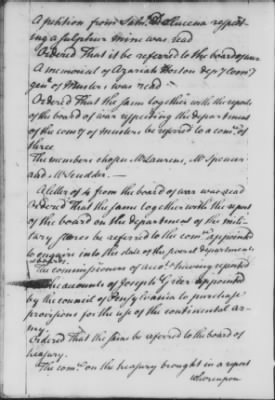 A petition from John D Lucena respect-
ing a sulphur mine was read
Ordered That it be referred to the board of war
A memorial of Azariah Horton dep y Comy
gen of Musters was read
Ordered That the same together with the report
of the board of war respecting the department
of the comy of musters be refered to a comee of
three
The members chosen Mr Laurens, Mr Spencer
and Mr Scudder
A letter of 4 from the board of war was read
Ordered That the same together with the report
of the board on the department of the mili-
tary stores be referred to the comee appointed
to enquire into the state of the several departments
The commissioners of accots having reported
accounts of Joseph Grier appointed
by the council of Pensylvania to purchase
provisions for the use of the continental ar-
my
Ordered That the same be refered to the board of
treasury.
The comee on the treasury brought in a report
whereupon